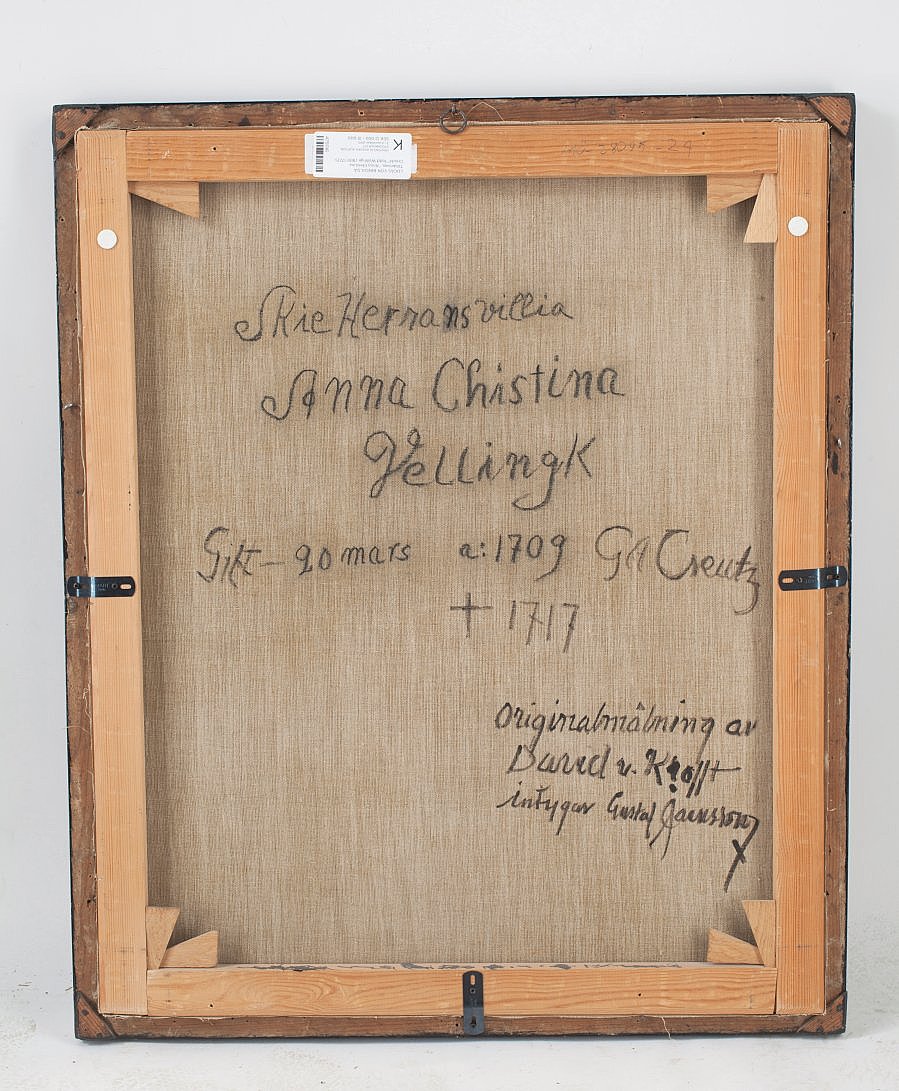 Skie Herransvillia
Anna Chistina
Vellingk
Gift – 20 mars a: 1709 GA Creutz
† 1717
Originalmålning av
David v. Krafft
intygar Gustaf Jaensson
X
K
LUCAS VON BREDA, D.Ä.